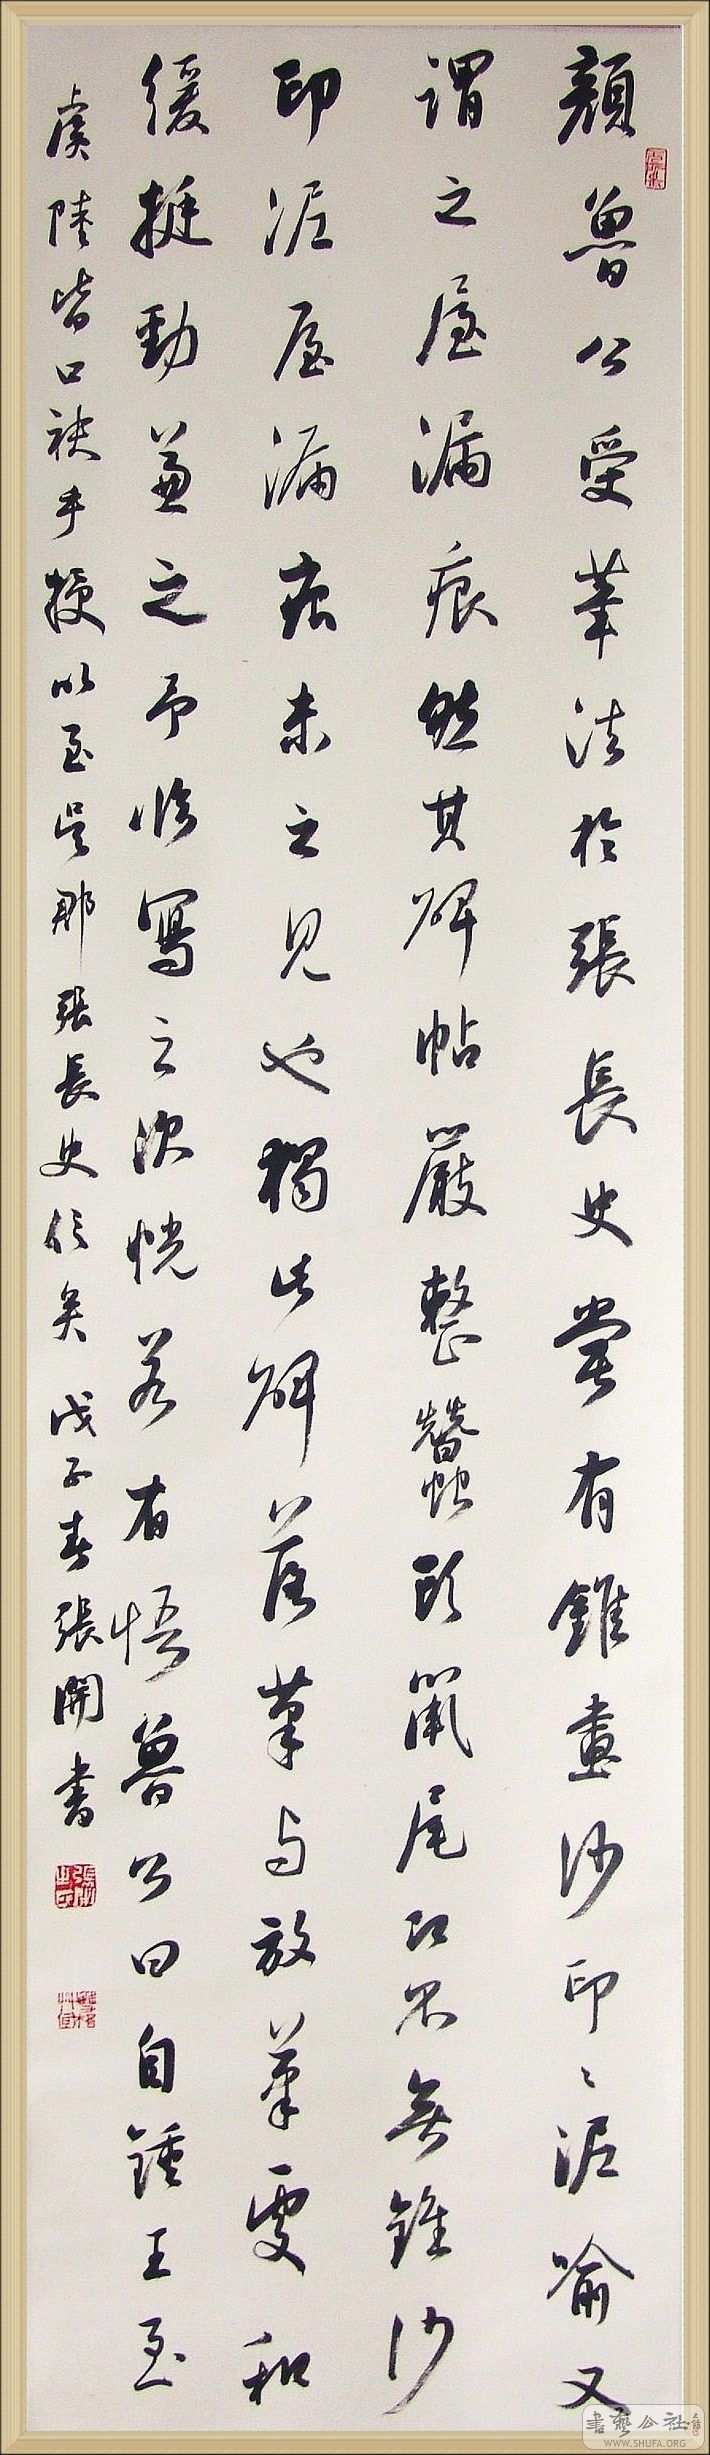 顏魯公受筆法於張長史嘗有錐畫沙印〻泥喻又
謂之屋漏痕然其碑帖嚴整蠶頭鼠尾無錐沙
印泥屋漏痕未之見也獨此碑落筆与放筆處和
緩挺勁兼之予臨寫之次恍若有悟魯公曰自鍾王至
虞陸皆口訣手授以至吳郡張長史信矣 戊子春張開書
書藝公社
WWW.SHUFA.ORG